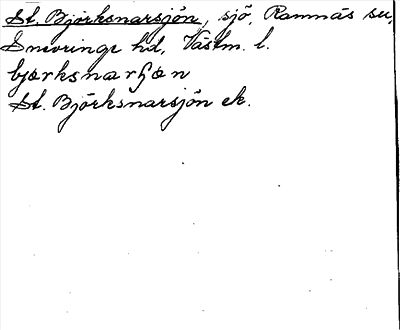 St. Björksnarsjön, sjö, Ramnäs sn,
Snevringe hd, Västm. l.
bjærksnarʃøn
St. Björksnarsjön ek.